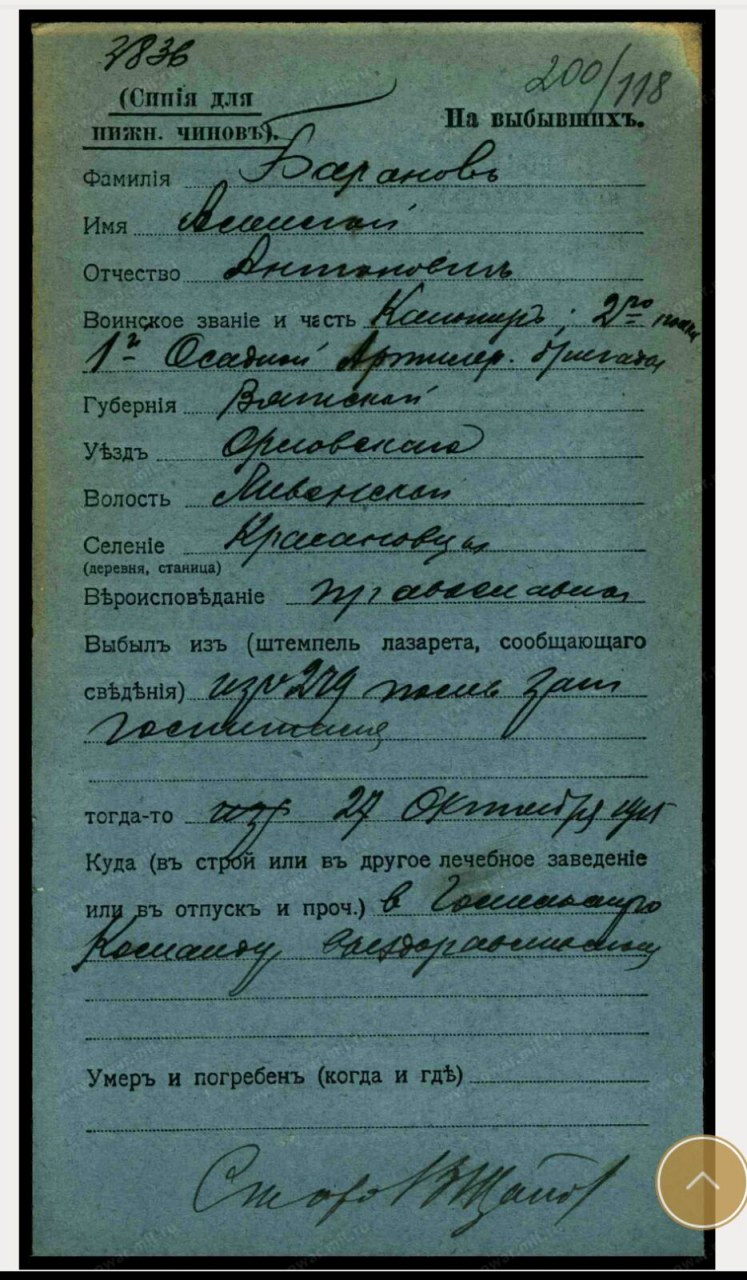 2836
200/118
(Синія для
нижн. чиновъ).
На выбывшихъ.
Фамилія Барановъ
Имя Алексей
Отчество Антоновичъ
Воинское званіе и часть Канониръ; 2го полка
1й Осадной Артилер. бригады
Губернія Вятской
Уѣздъ Орловскаго
Волость
Селеніе
(деревня, станица)
Вѣроисповѣданіе православна
Выбылъ изъ (штемпель лазарета, сообщающаго
свѣдѣнія) изъ 279 полев зап
госпиталя
тогда-то 27 Октября
Куда (въ строй или въ другое лечебное заведеніе
или въ отпускъ и проч.) в Гомельскую
Команду выздоравливающ
Умеръ и погребенъ (когда и гдѣ)